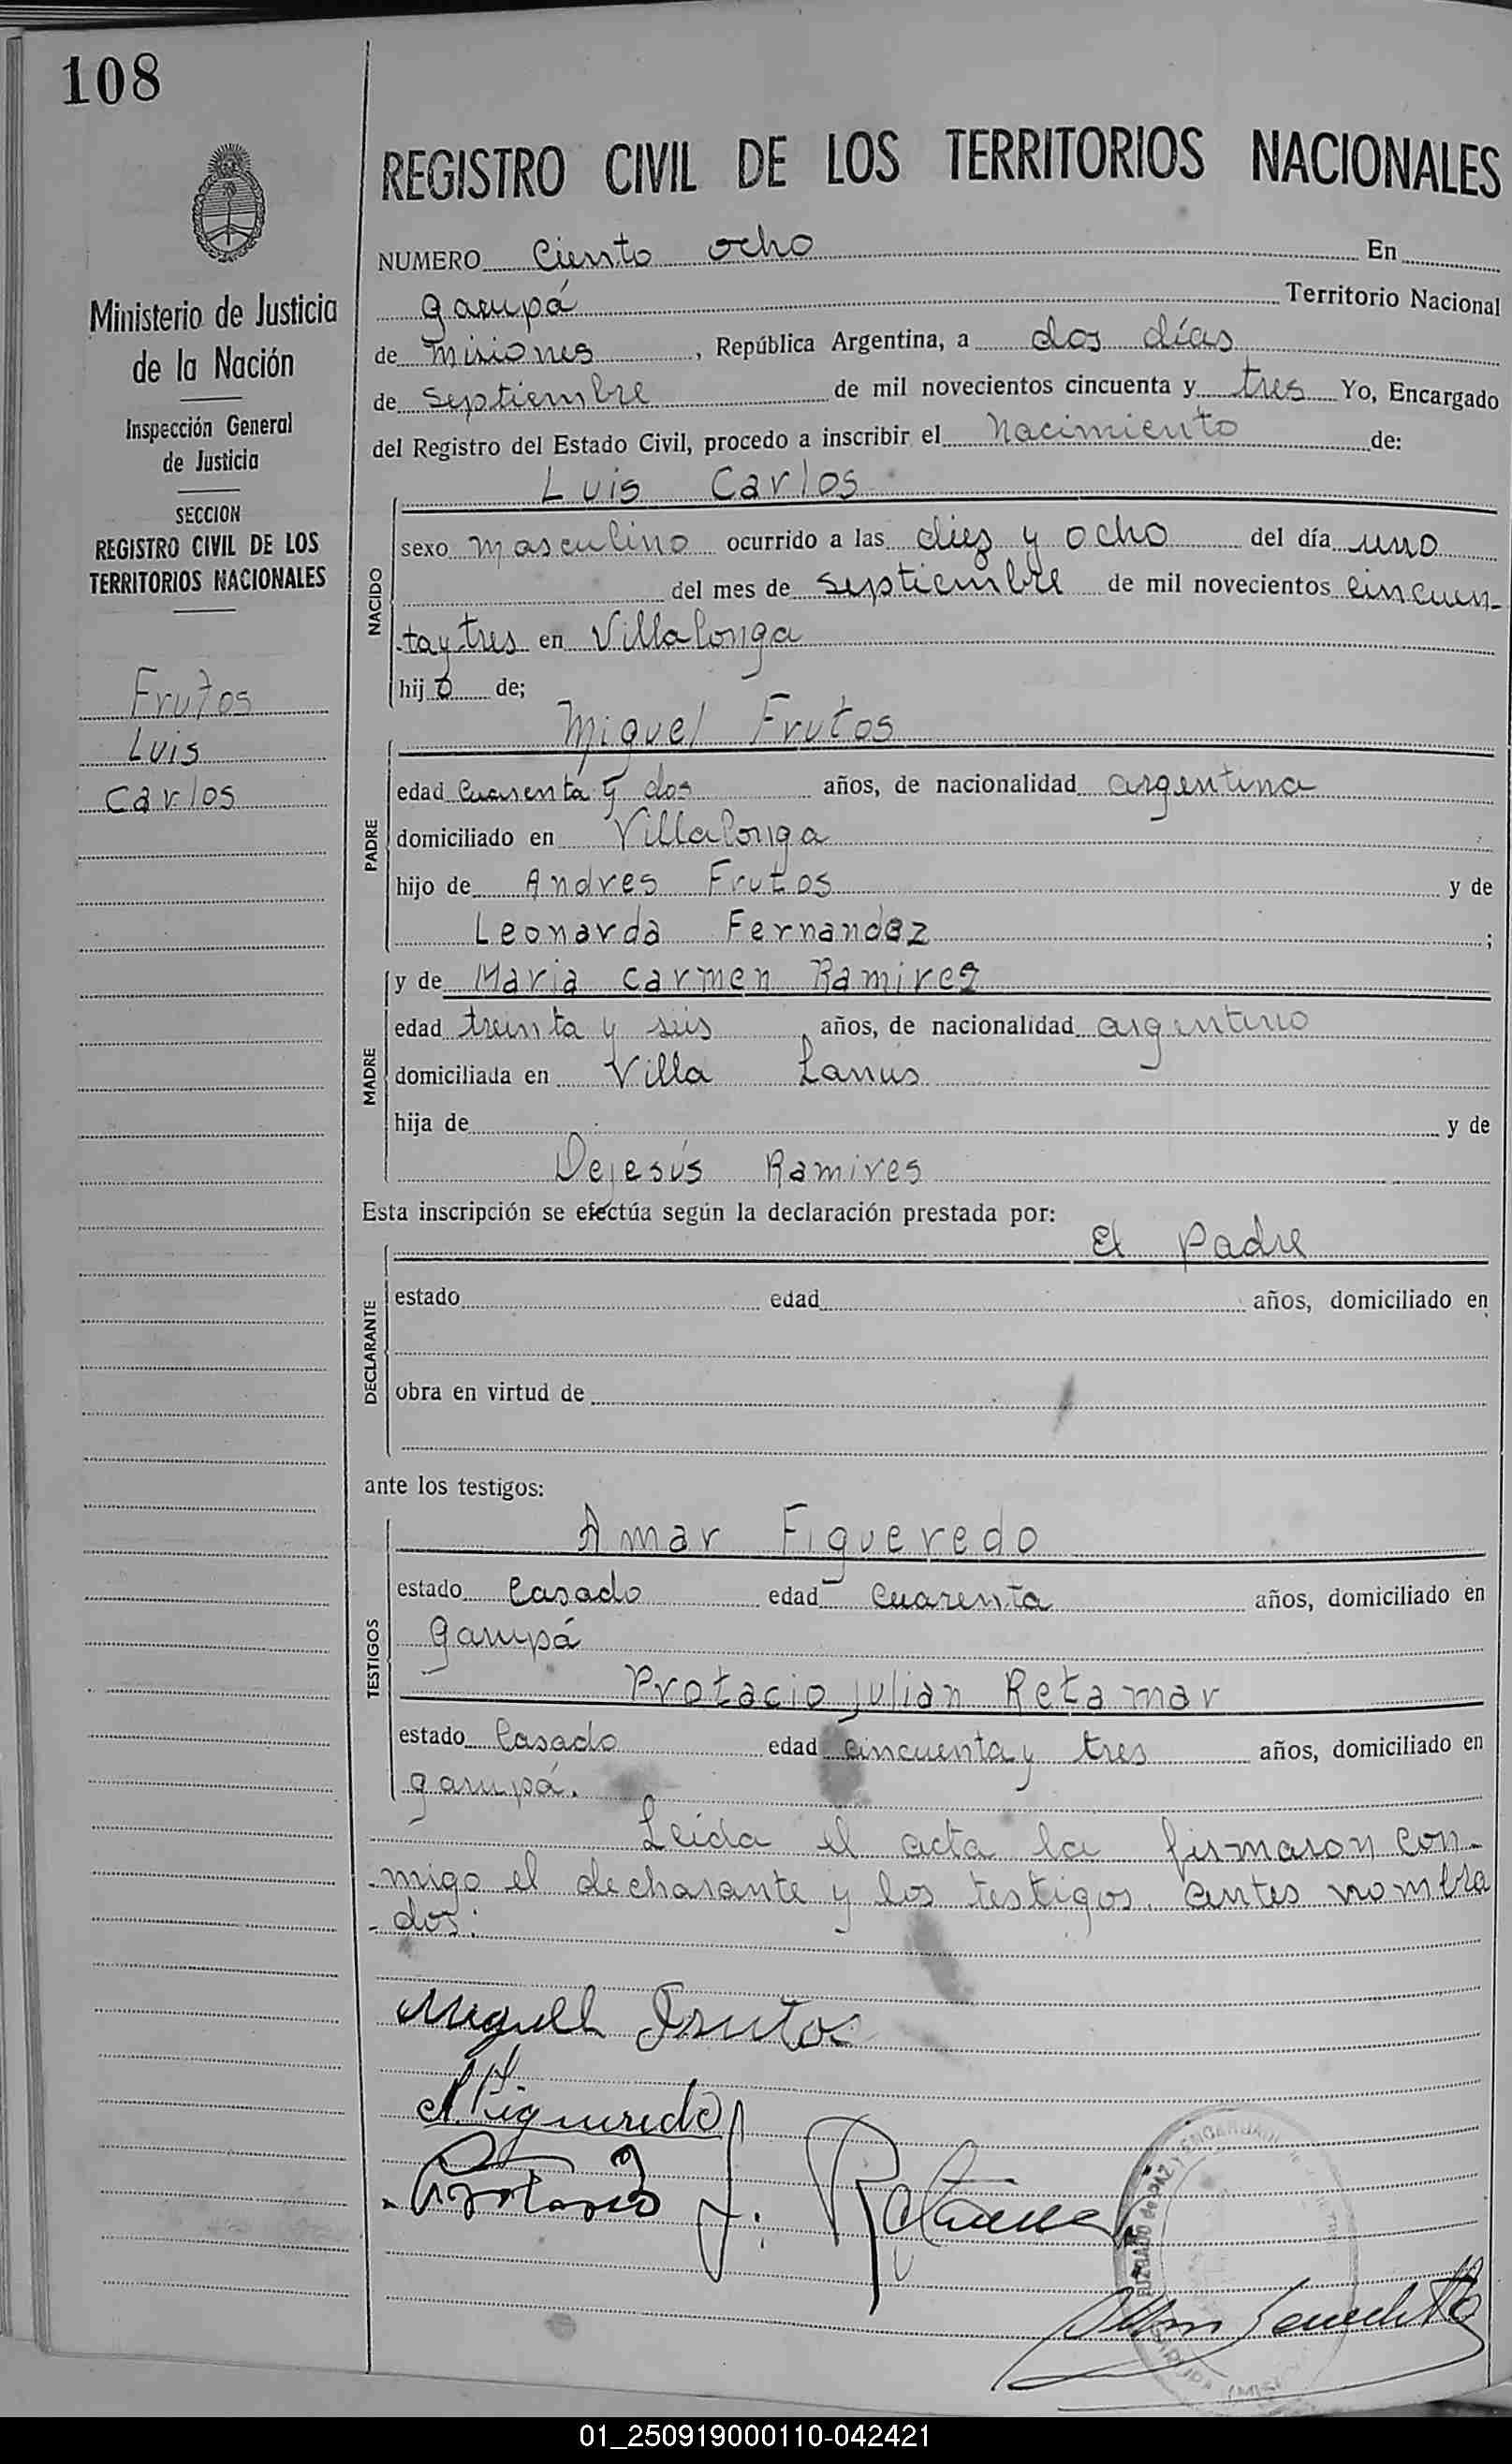 108
REGISTRO CIVIL DE LOS TERRITORIOS NACIONALES
Ministerio de Justicia
de la Nación
Inspección General
de Justicia
SECCION
REGISTRO CIVIL DE LOS
TERRITORIOS NACIONALES
Frutos
Luis
Carlos
NUMERO Ciento ocho En
Garupá Territorio Nacional
de Misiones, República Argentina, a dos días
de Septiembre de mil novecientos cincuenta y tres Yo, Encargado
del Registro del Estado Civil, procedo a inscribir el Nacimiento de:
NACIDO
Luis Carlos
sexo masculino ocurrido a las diez y ocho del día uno
del mes de septiembre de mil novecientos cincuen-
-ta y tres en Villalonga
hijo de;
PADRE
Miguel Frutos
edad Cuarenta y dos años, de nacionalidad argentina
domiciliado en Villalonga
hijo de Andres Frutos y de
Leonarda Fernandez;
MADRE
y de Maria Carmen Ramirez
edad treinta y seis años, de nacionalidad argentino
domiciliada en Villa Lanús
hija de y de
Dejesús Ramires
Esta inscripción se efectúa según la declaración prestada por:
DECLARANTE
El Padre
estado edad años, domiciliado en
obra en virtud de
ante los testigos:
TESTIGOS
Amar Figueredo
estado Casado edad Cuarenta años, domiciliado en
Garupá
Protacio Julian Retamar
estado Casado edad cincuenta y tres años, domiciliado en
garupá.
Leida el acta la firmaron con-
-migo el decharante y los testigos antes nombra
-dos.
Miguel Frutos
A. Figueredo
Protacio J. Retamar
01_250919000110-042421